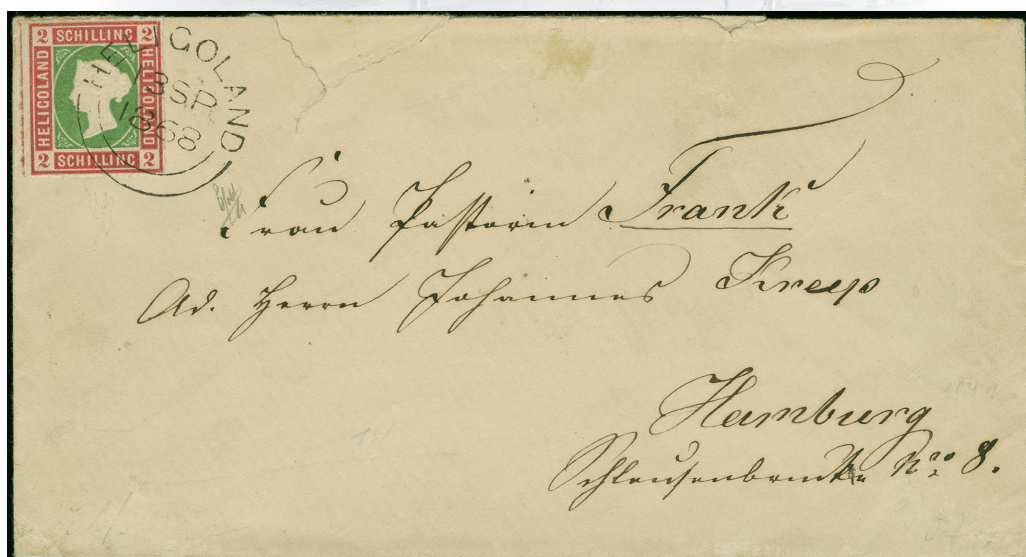 2 SCHILLING 2
HELIGOLAND
HELIGOLAND
2 SCHILLING 2
HELIGOLAND
13 SP
1868
Frau Pastorin Frank
Ad. Herrn Johannes
Hamburg
Schleusenbrücke No 8.